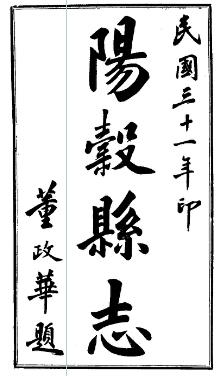 民國三十一年印
陽穀縣志
董政華題